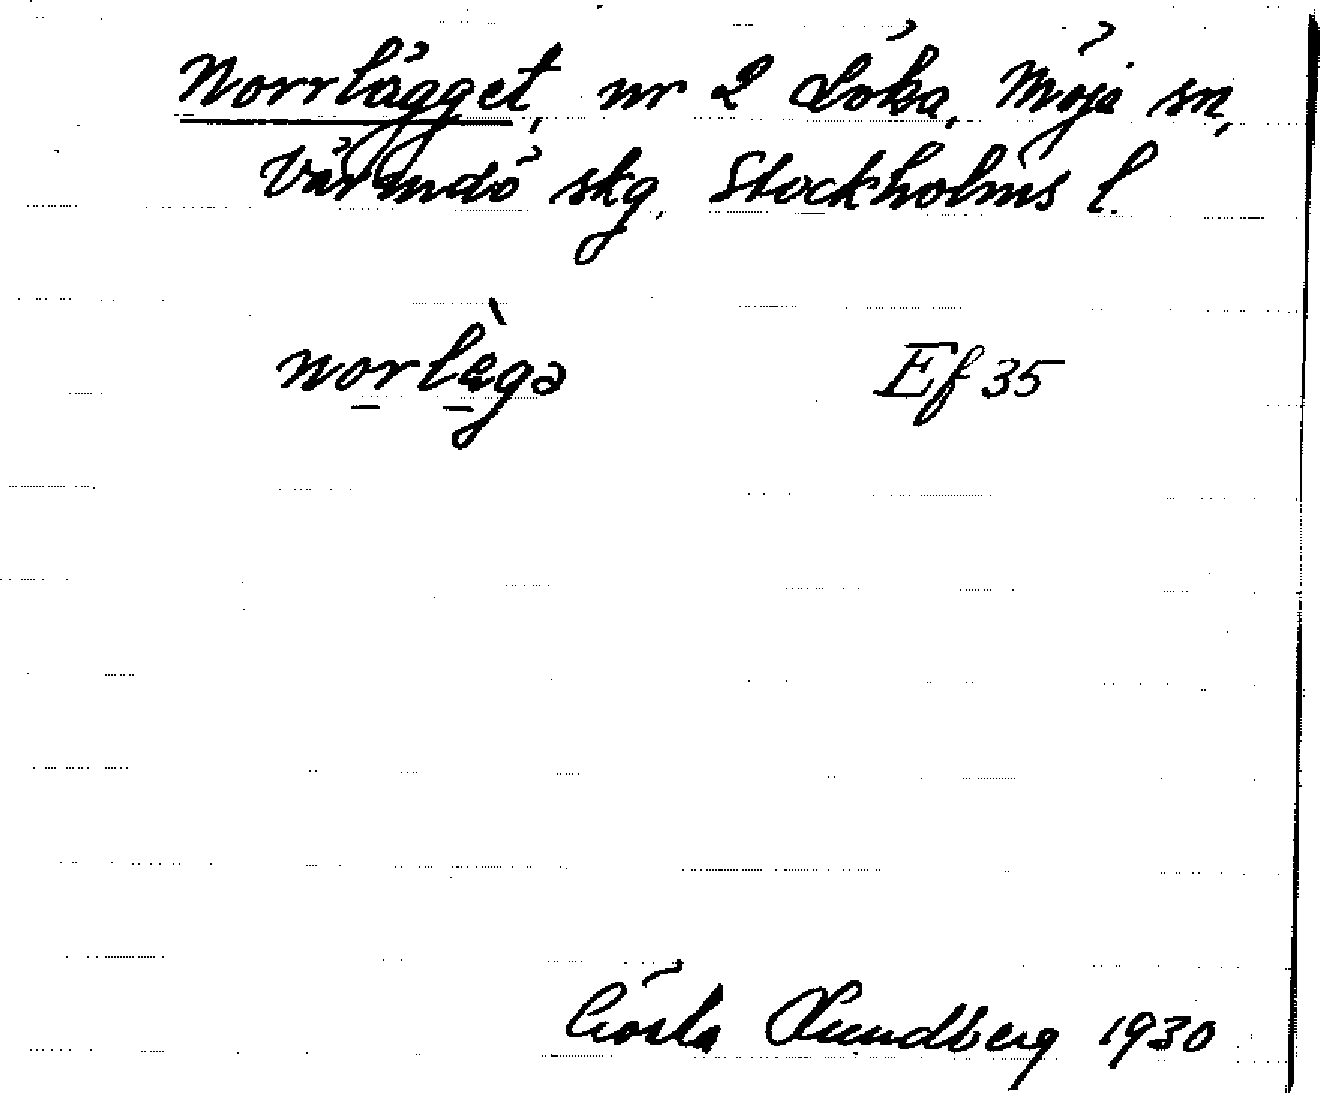 Norrlägget, nr 2 Löka, Möja sn,
Värmdö skg. Stockholms l.
norlègə Ef 35
Gösta Lundberg 1930